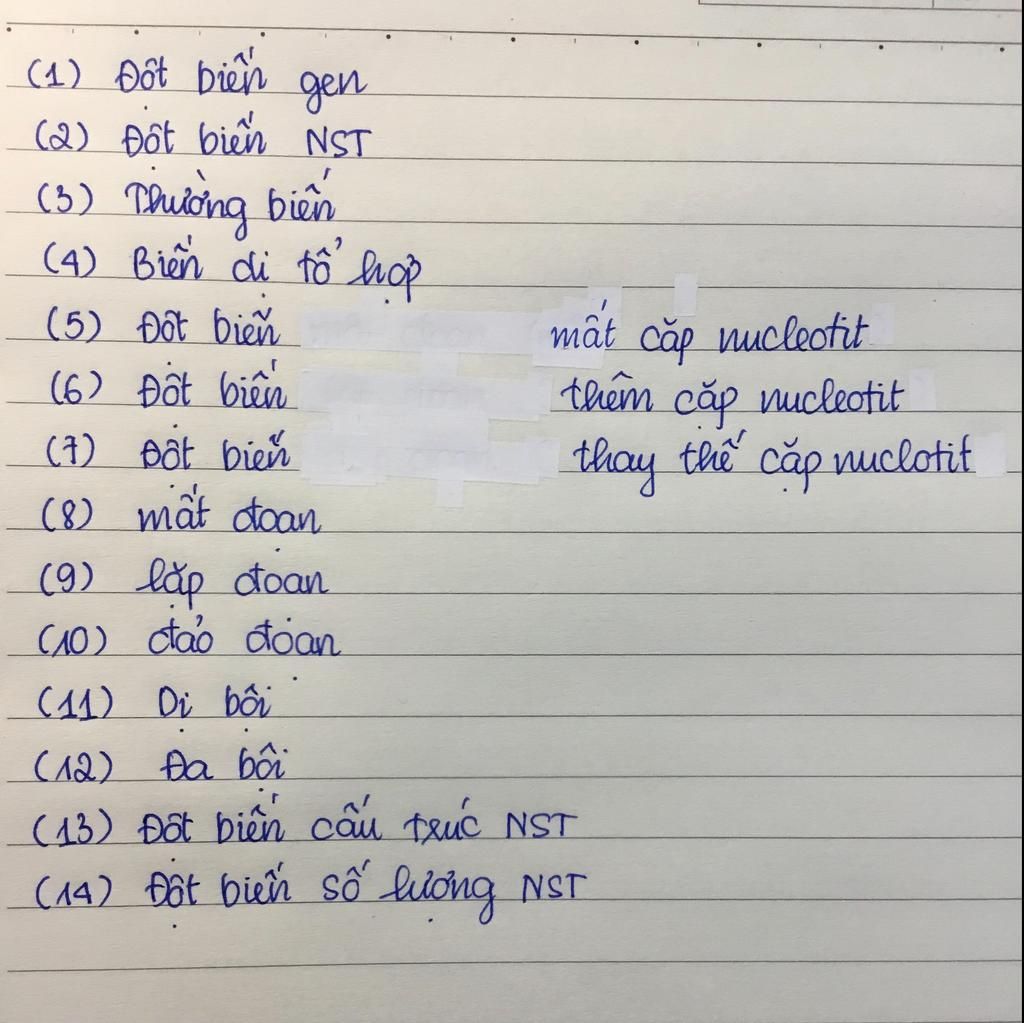 (1) Đột biến gen
(2) Đột biến NST
(3) Thường biến
(4) Biến dị tổ hợp
(5) Đột biến mất cặp nucleotit
(6) Đột biến thêm cặp nucleotit
(7) Đột biến thay thế cặp nuclotit
(8) mất đoạn
(9) lặp đoạn
(10) đảo đoạn
(11) Dị bội
(12) Đa bội
(13) Đột biến cấu trúc NST
(14) Đột biến số lượng NST